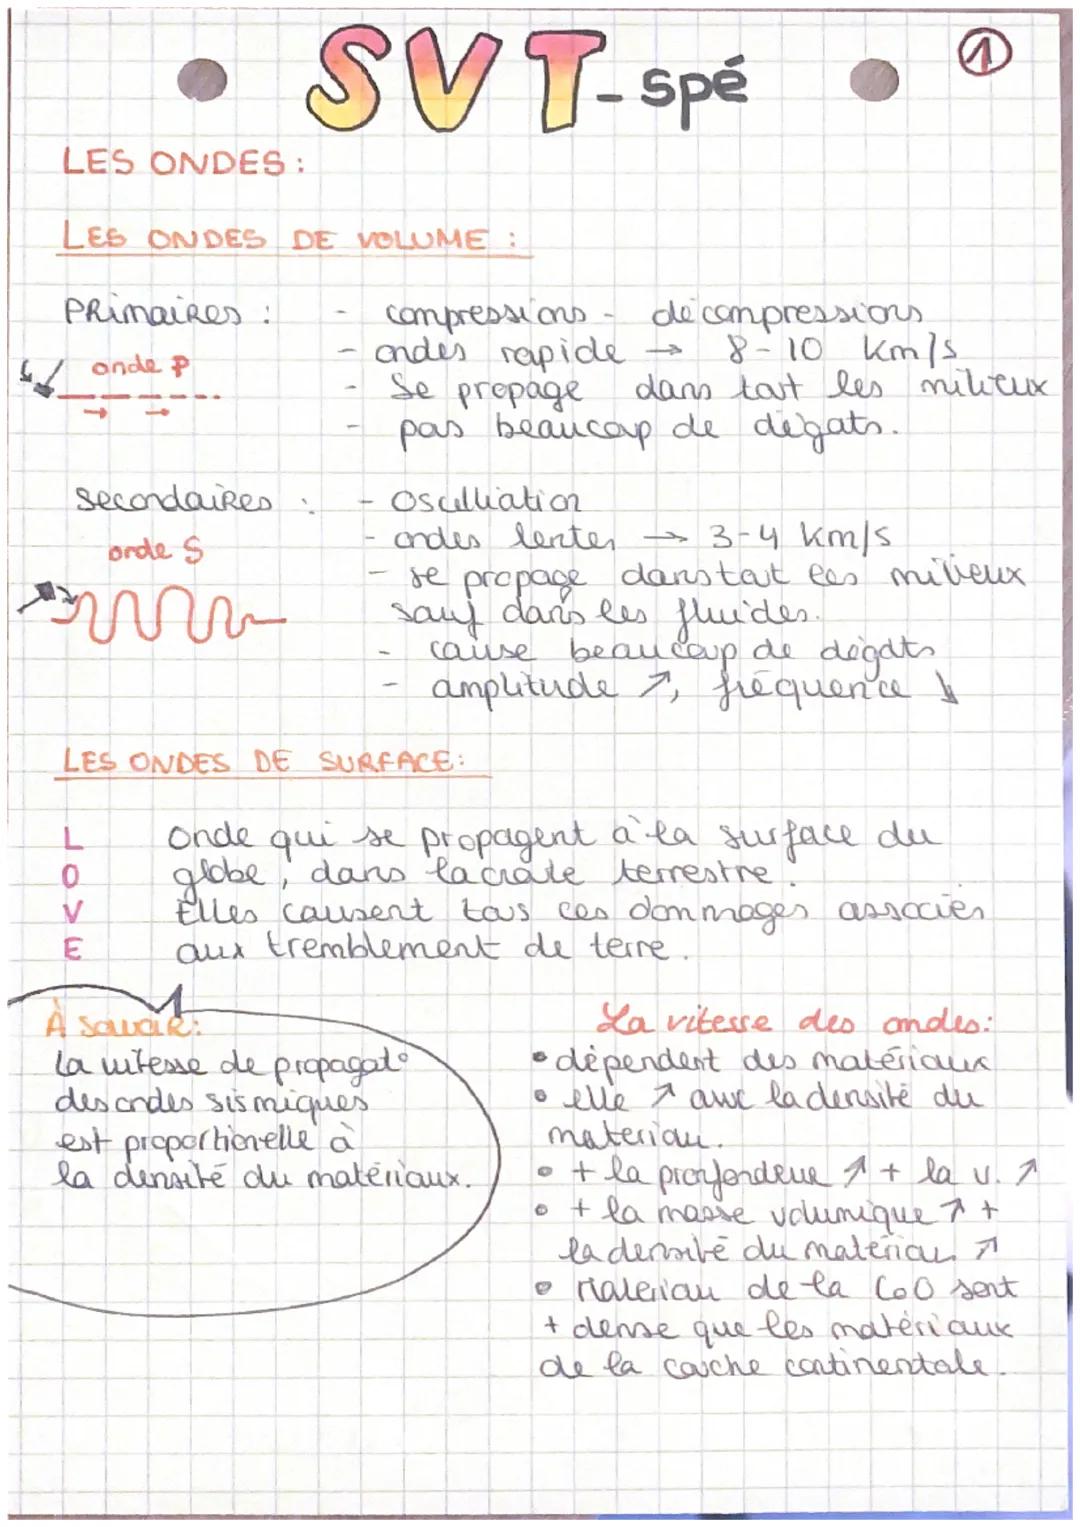 SVT-spé
①
LES ONDES :
LES ONDES DE VOLUME :
PRimaiRes :
- compressions - décompressions
onde P
- ondes rapide → 8-10 km/s
- Se propage dans tout les milieux
- pas beaucoup de dégats.
SecondaiRes :
- Oscilliation
onde S
- ondes lentes → 3-4 km/s
- se propage dans tout les milieux
sauf dans les fluides.
- cause beaucoup de dégâts
- amplitude ↗, fréquence ↘
LES ONDES DE SURFACE:
L
O
V
E
Onde qui se propagent à la surface du
globe, dans la croute terrestre.
Elles causent tous ces dommages associés
aux tremblement de terre.
À SavoiR:
La vitesse de propagat°
des ondes sismiques
est proportionelle à
la densité du matériaux.
La vitesse des ondes:
• dépendent des matériaux
• elle ↗ avec la densité du
materiau.
• + la profondeur ↗ + la v. ↗
• + la masse volumique ↗ +
la densité du materiau ↗
• Materiau de la CoO sont
+ dense que les matériaux
de la couche continentale.